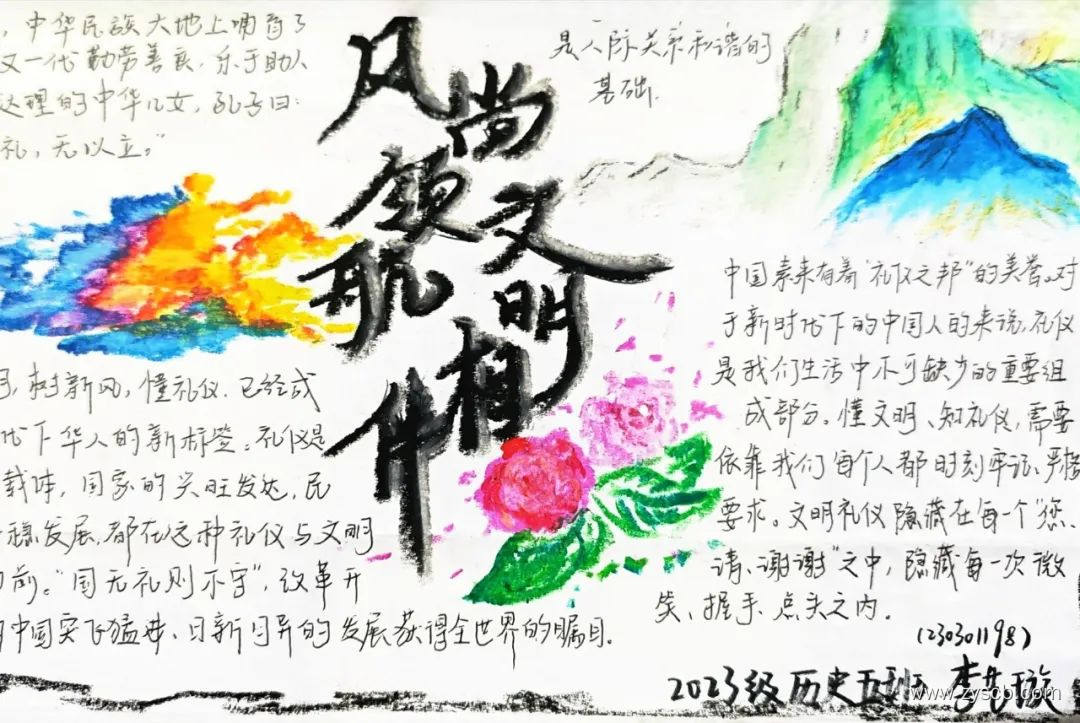 ，中华民族大地上哺育了
又一代勤劳善良，乐于助人
达理的中华儿女，孔子曰：
礼，无以立。”
风尚领航
文明相伴
是人际关系和谐的
基础.
，树新风，懂礼仪.已经成
代下华人的新标签。礼仪是
载体，国家的兴旺发达，民
稳发展，都在这种礼仪与文明
前。“国无礼则不宁”，改革开
中国突飞猛进、日新月异的发展获得全世界的瞩目.
中国素来有着“礼仪之邦”的美誉。对
于新时代下的中国人的来说，礼仪
是我们生活中不可缺少的重要组
成部分。懂文明、知礼仪，需要
依靠我们每个人都时刻牢记、严格
要求。文明礼仪隐藏在每一个“您、
请、谢谢”之中，隐藏每一次微
笑、握手、点头之内.
(230301198)
2023级历史五班
www.zyscb.com